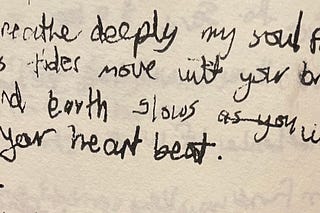 breathe deeply my soul
tides move with your
earth slows as you
your heart beat.